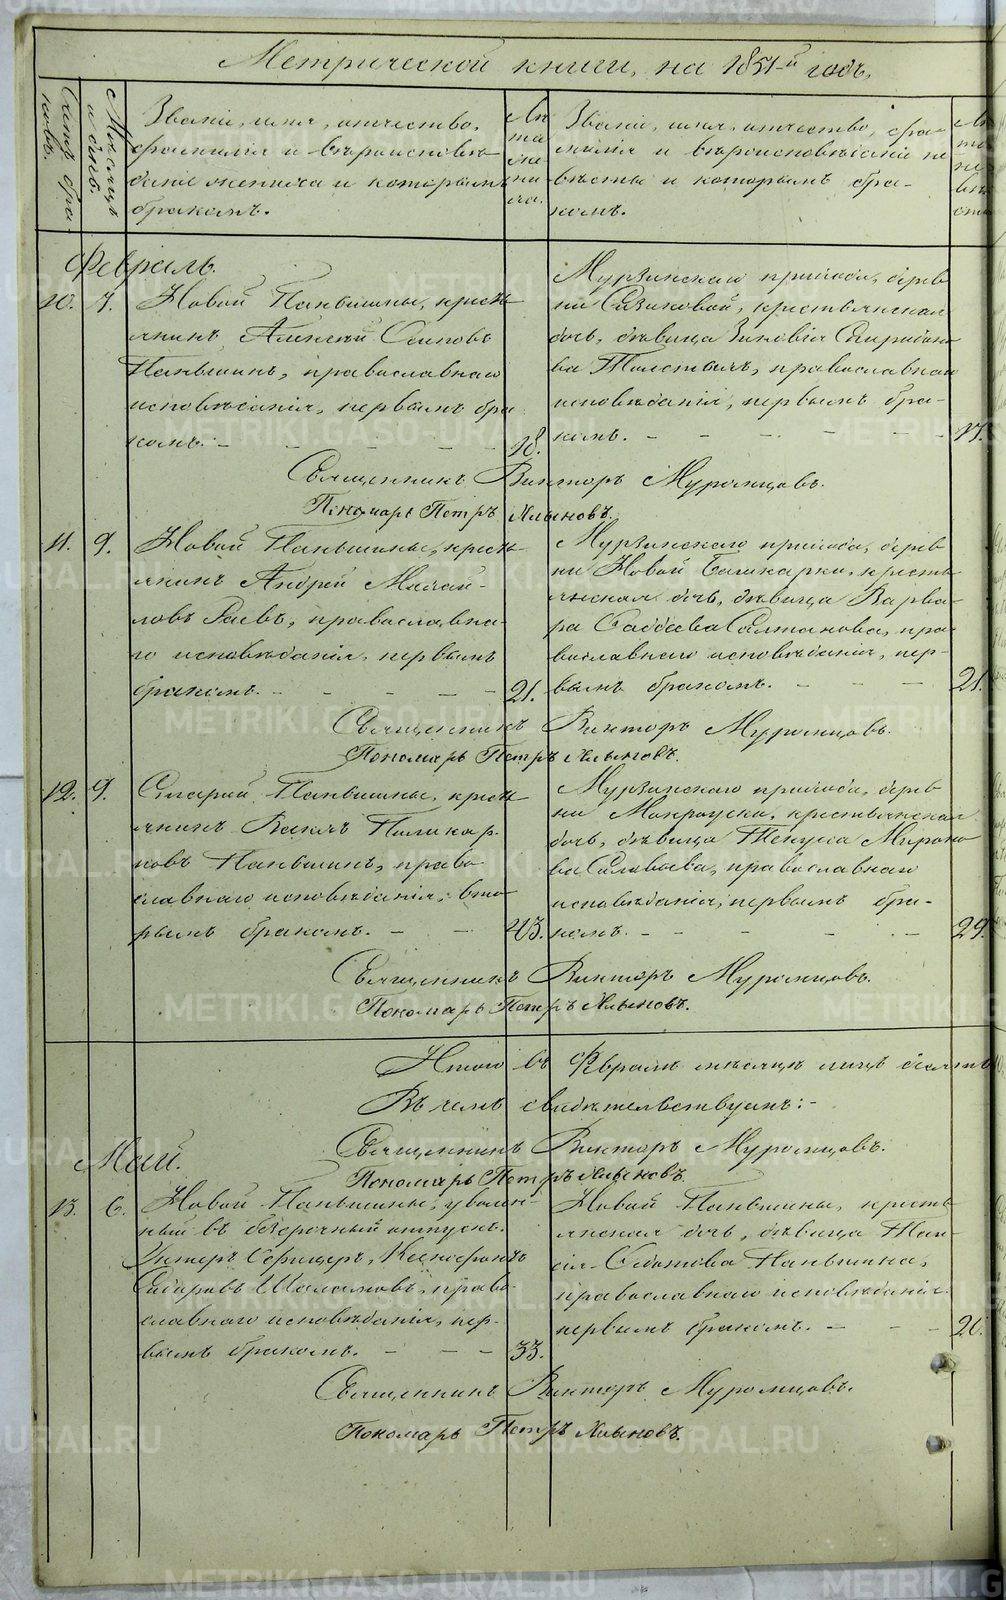 Метрической книги, на 1851-й годъ.
Счетъ бра-
ковъ.
Мѣсяцъ
и день.
Званіе, имя, отчество,
фамилія и вѣроисповѣ-
даніе жениха и которымъ
бракомъ.
Лѣ
та
же
ни
ха.
Званіе, имя, отчество, фа-
милія и вѣроисповѣданіе не
вѣсты и которымъ бра-
комъ.
Лѣ
та
не
вѣ
сты
Февраль.
10. 7. Новой Паньшины, кресть
янинъ Алексѣй Осиповъ
Паньшинъ, православнаго
исповѣданія, первымъ бра
комъ. 18.
Мурзинскаго прихода, дерев
ни Сизиковой, крестьянская
дочь, дѣвица Зиновія Спиридоно
ва, православнаго
исповѣданія, первымъ бра-
комъ. 17.
Священникъ Викторъ Муромцовъ.
Пономарь Петръ Хлыновъ.
11. 9. Новой Паньшины, кресть-
янинъ Андрей Михай-
ловъ Раевъ, православна-
го исповѣданія, первымъ
бракомъ. 21.
Мурзинскаго прихода, дерев
ни Новой Башкарки, кресть
янская дочь, дѣвица Варва-
ра Саввава Салтанова, пра-
вославнаго исповѣданія, пер-
вымъ бракомъ. 21.
Священникъ Викторъ Муромцовъ.
Пономарь Петръ Хлыновъ.
12. 9. Старой Паньшины, кресть
янинъ Поликар-
повъ Паньшинъ, право
славнаго исповѣданія, вто
рымъ бракомъ. 43.
Мурзинскаго прихода, дерев
ни Мокроуски, крестьянская
дочь, дѣвица Текуса Мироно
ва Саловьева, православнаго
исповѣданія, первымъ бра-
комъ. 29.
Священникъ Викторъ Муромцовъ.
Пономарь Петръ Хлыновъ.
Итого въ Февралѣ мѣсяцѣ лицъ
Въ чемъ свидѣтельствуемъ:-
Священникъ Викторъ Муромцовъ.
Пономарь Петръ Хлыновъ.
Май.
13. 6. Новой Паньшины, уволен-
ный въ безсрочный отпускъ
Унтеръ Офицеръ, Ксенофонтъ
Сидоровъ, право
славнаго исповѣданія, пер-
вымъ бракомъ. 33.
Новой Паньшины, кресть
янская дочь, дѣвица
Паньшина,
православнаго исповѣданія
первымъ бракомъ. 20.
Священникъ Викторъ Муромцовъ.
Пономарь Петръ Хлыновъ.
METRIKI.GASO-URAL.RU